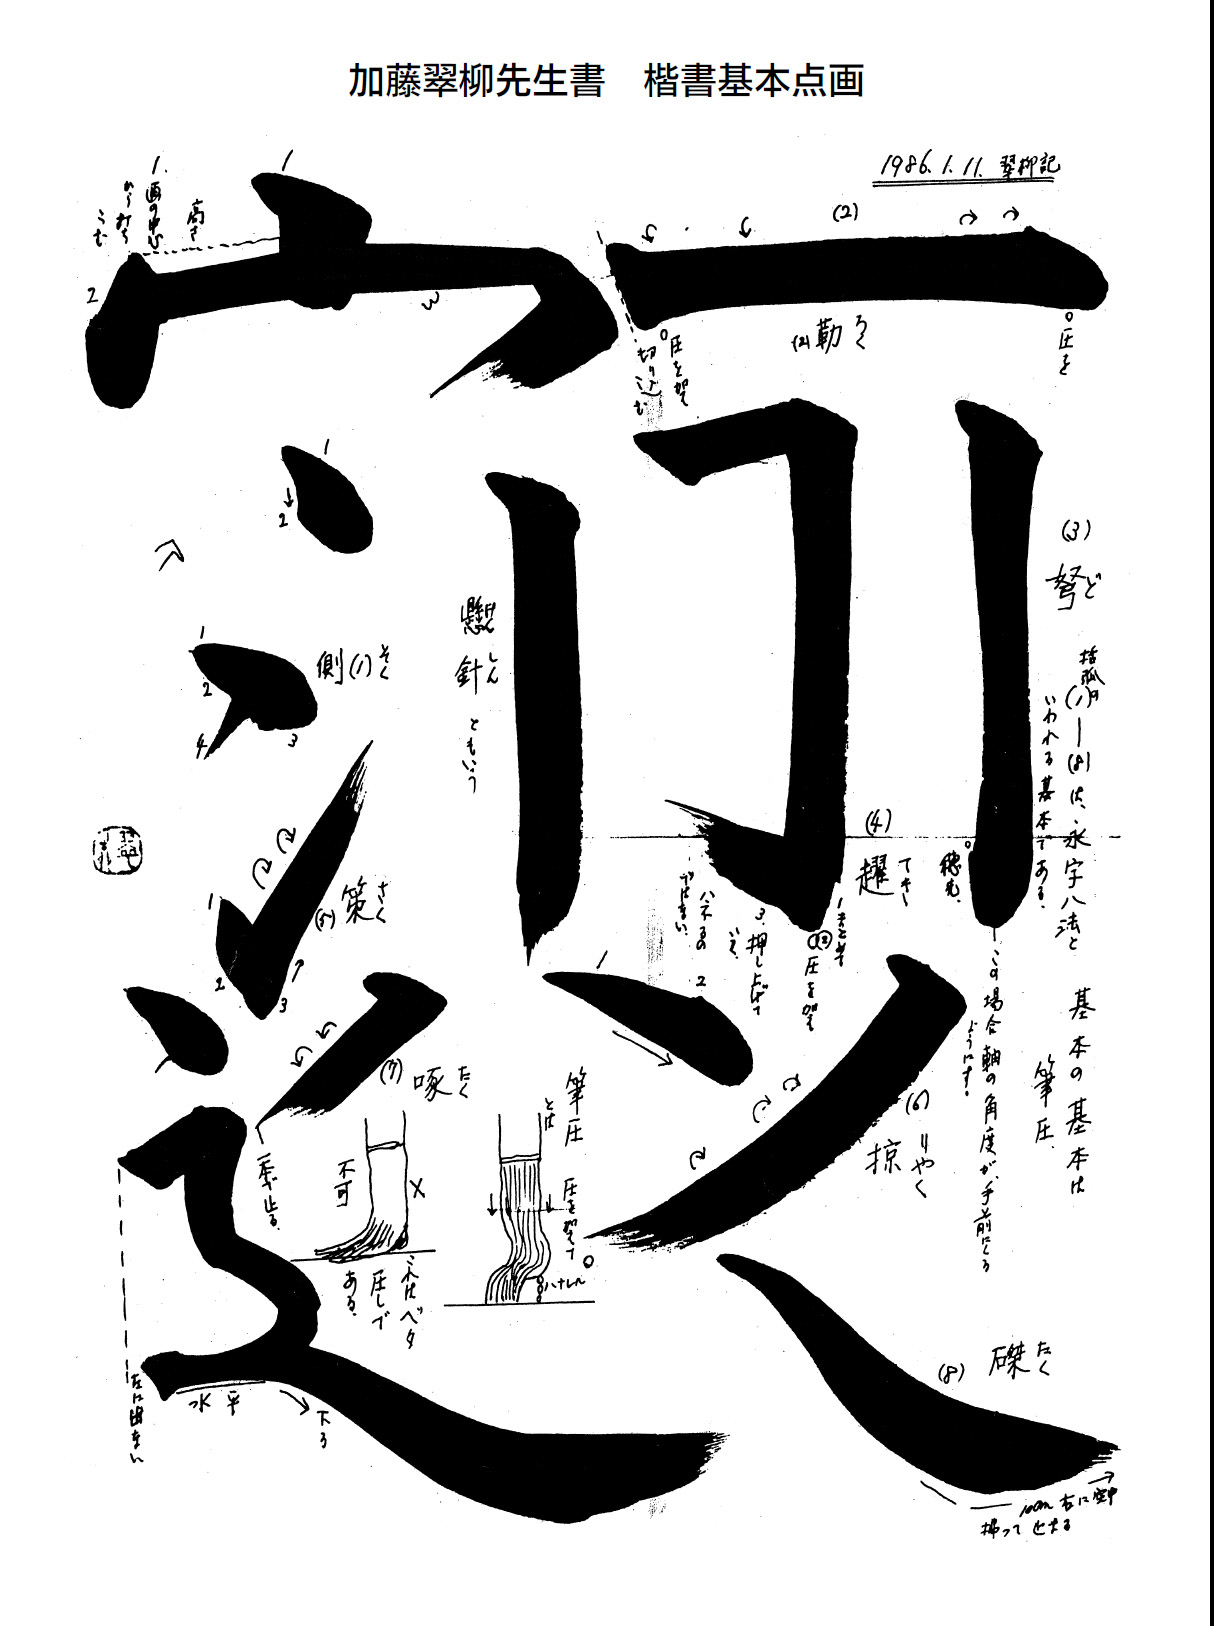 加藤翠柳先生書　楷書基本点画
1986.1.11. 翠柳記
(2)
(2)勒 ろく
圧を
圧を加えて
切り込む
(3)
弩 ど
括弧の(1)―(8)は、永字八法と
いわれる基本である。
基本の基本は
筆圧
穂先
この場合軸の角度が手前にくる
ようにす。
(4)
趯 てき
圧を加え
3.押し上げて
いく。
ハネるの
ではない。
1
2
(6)
掠 りやく
(8)
磔 たく
右に空中
払って止まる
懸針 けんしん
ともいう
1
高さ
1.
画の中心
から打ち
こむ
2
3
1
2
側(1) そく
1
2
3
4
(5) 策 さく
1
2
3
(7) 啄 たく
一旦止る。
筆圧
とは
圧を加えて
ハナレル
不可
×
これはベタ
圧しで
ある。
水平
下る
左に出ない